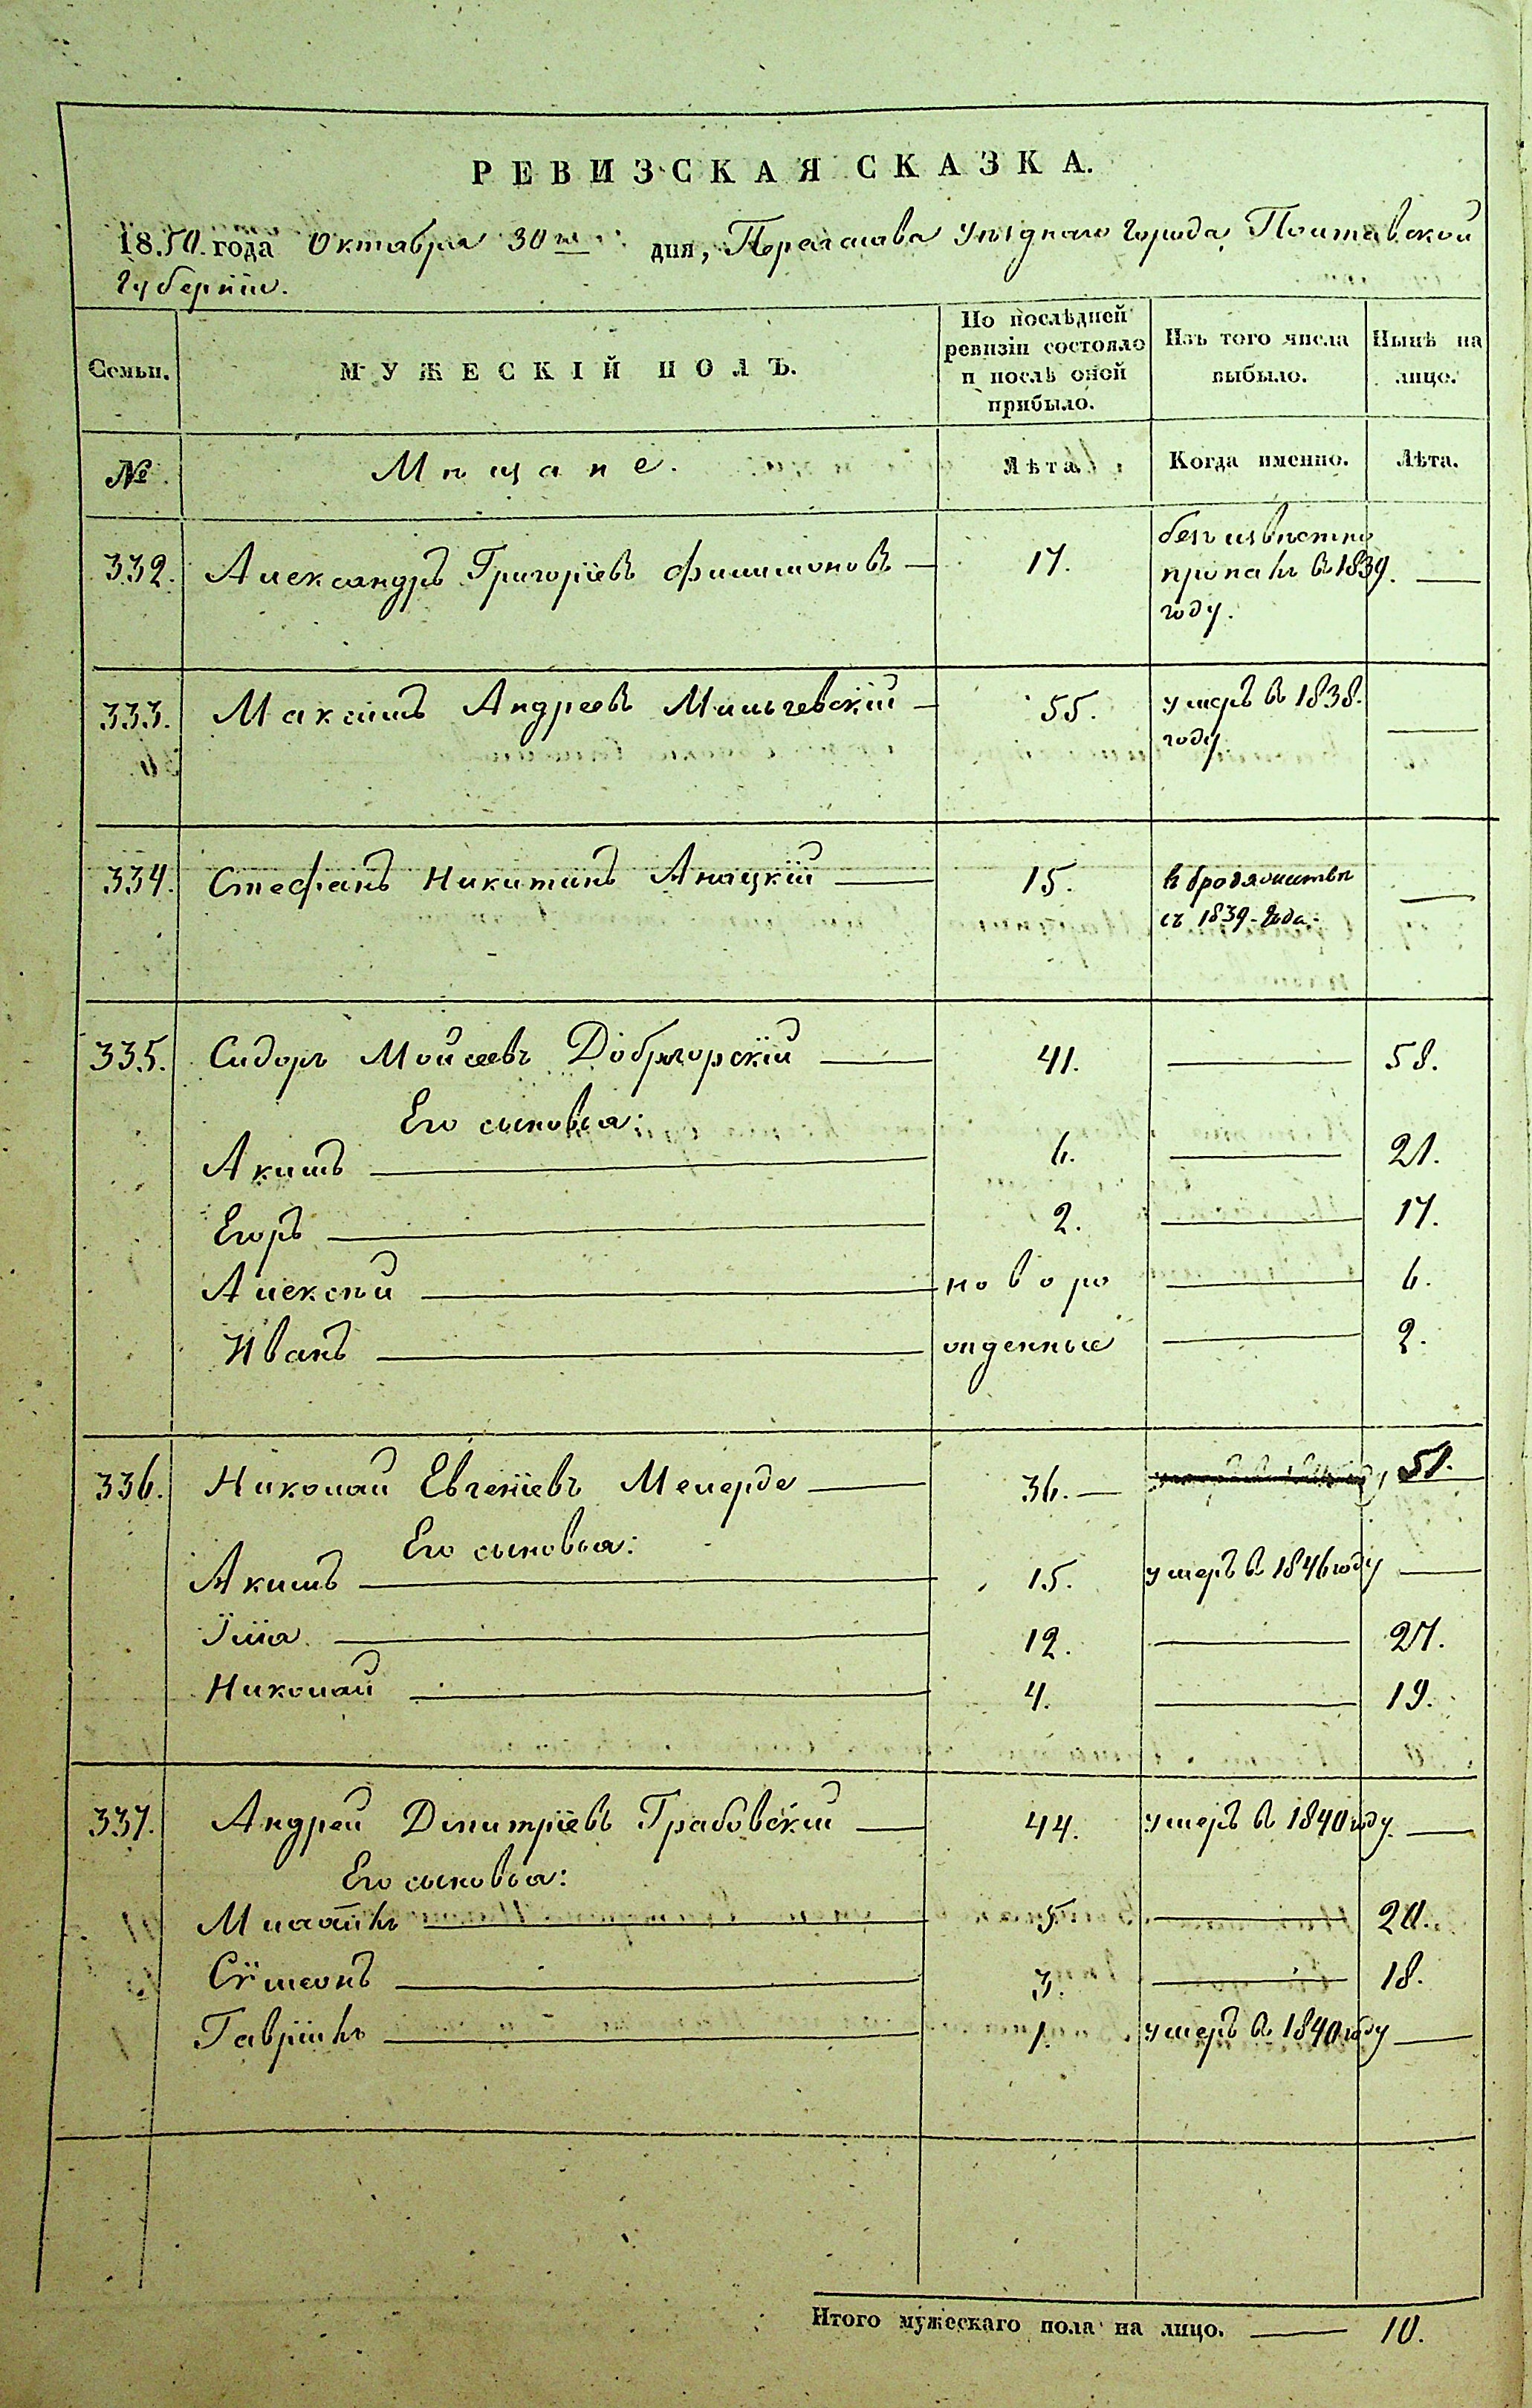 РЕВИЗСКАЯ СКАЗКА.
1850. года Октября 30го дня, Переяслава Уѣзднаго Города, Полтавской
Губерніи.
Семьи.
МУЖЕСКІЙ ПОЛЪ.
По послѣдней
ревизіи состояло
и послѣ оной
прибыло.
Изъ того числа
выбыло.
Нынѣ на
лицо.
№
Мѣщане.
Лѣта.
Когда именно.
Лѣта.
332. Александръ Григоріевъ Филимоновъ — 17. безъ извѣстно
пропалъ въ 1839. —
году.
333. Максимъ Андреевъ Мильчевскій — 55. умеръ въ 1838.
году —
334. Стефанъ Никитинъ — 15. въ бродяжествѣ
съ 1839. года. —
335. Сидоръ Мойсеевъ Доброгорскій — 41. — 58.
Его сыновья:
Акимъ — 6. — 21.
Егоръ — 2. — 17.
Алексѣй — новоро — 6.
Иванъ — жденные — 2.
336. Николай Евгеніевъ Мелерде — 36. — 51.
Его сыновья:
Акимъ — 15. умеръ въ 1846 году —
Илія — 12. — 27.
Николай — 4. — 19.
337. Андрей Дмитріевъ Грабовскій — 44. умеръ въ 1840 году. —
Его сыновья:
5. — 20.
Сѵмеонъ — 3. — 18.
Гавріилъ — 1. умеръ въ 1840 году —
Итого мужескаго пола на лицо. — 10.